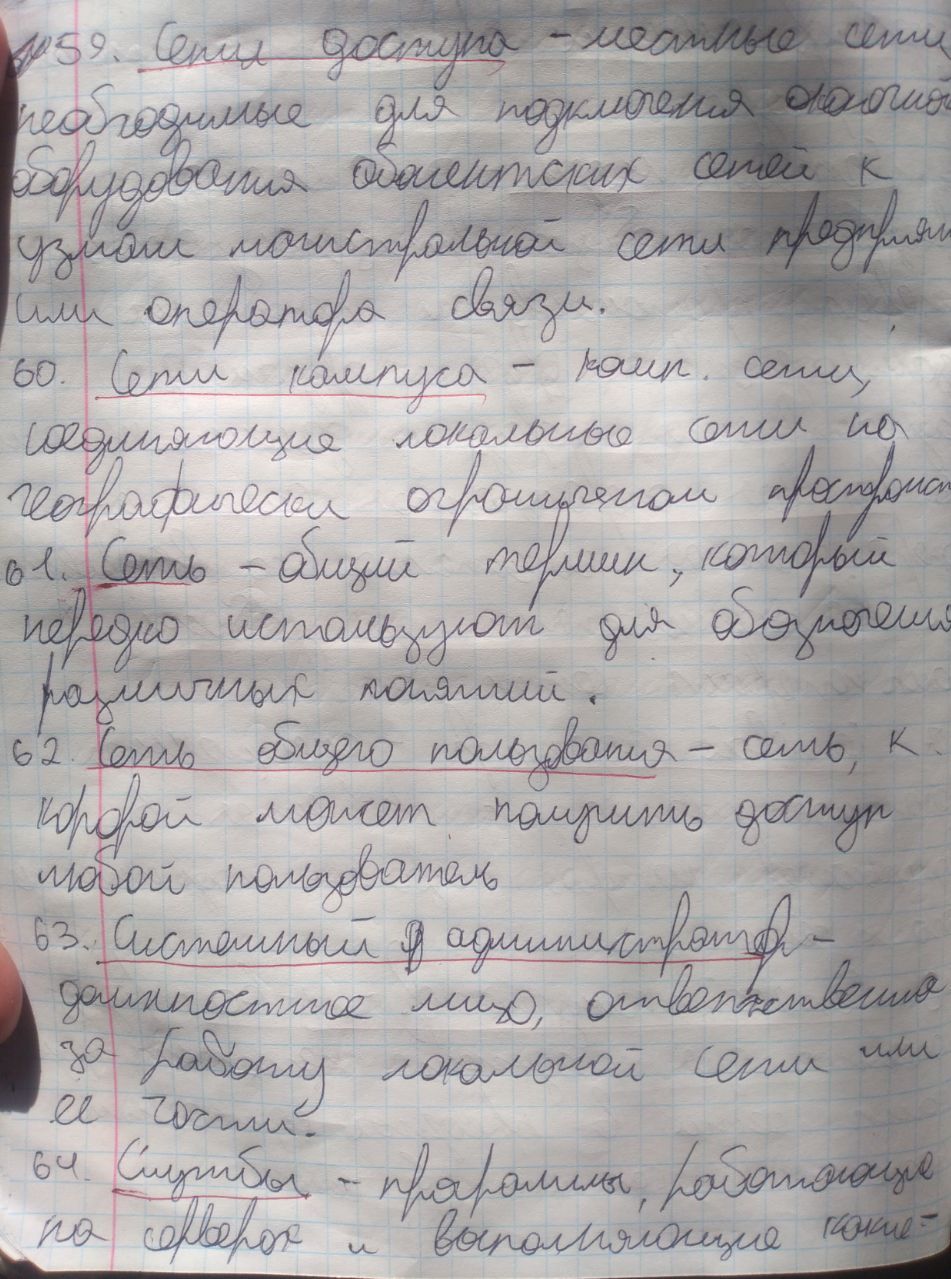 59. Сети доступа - местные сети
необходимые для подключения оконечно
оборудования абонентских сетей к
узлам магистральной сети предприят
или оператора связи.
60. Сети кампуса - комп. сети,
соединяющие локальные сети на
географически ограниченом пространст
61. Сеть - общий термин, который
нередко используют для обозначения
различных понятий.
62. Сеть общего пользования - сеть, к
коророй может получить доступ
любой пользователь
63. Системный администратор -
должностное лицо, ответственное
за работу локальной сети или
ее части.
64. Службы - программы, работающие
на серверах и выполняющие какие-